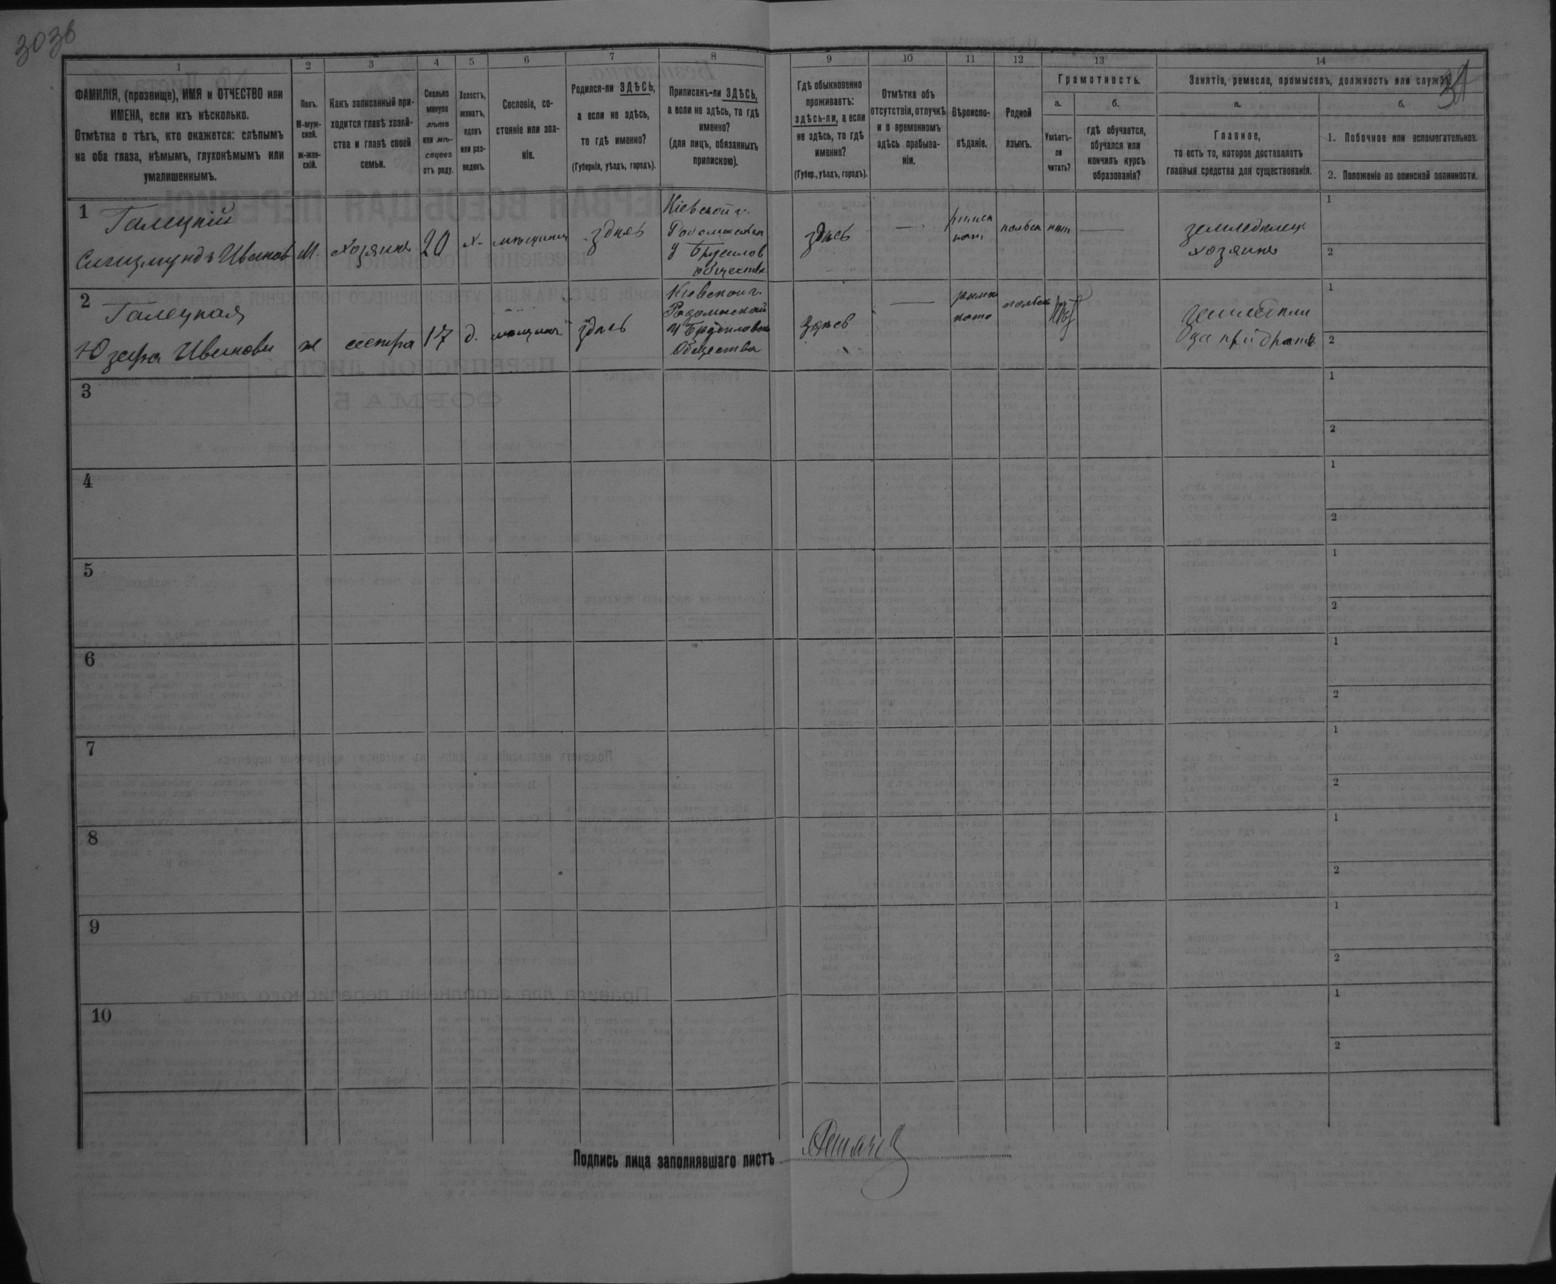 3036
1
2
3
4
5
6
7
8
9
10
11
12
13
14
ФАМИЛІЯ, (прозвище), ИМЯ и ОТЧЕСТВО или
ИМЕНА, если ихъ нѣсколько.
Отмѣтка о тѣхъ, кто окажется: слѣпымъ
на оба глаза, нѣмымъ, глухонѣмымъ или
умалишеннымъ.
Полъ.
М-муж-
ской.
ж-жен-
скій.
Какъ записанный при-
ходится главѣ хозяй-
ства и главѣ своей
семьи.
Сколько
минуло
лѣтъ
или мѣ-
сяцевъ
отъ роду.
Холостъ,
женатъ,
вдовъ
или раз-
веденъ.
Сословіе, со-
стояніе или зва-
ніе.
Родился-ли ЗДѢСЬ,
а если не здѣсь,
то гдѣ именно?
(Губернія, уѣздъ, городъ).
Приписанъ-ли ЗДѢСЬ,
а если не здѣсь, то гдѣ
именно?
(для лицъ, обязанныхъ
припискою).
Гдѣ обыкновенно
проживаетъ:
здѣсь-ли, а если
не здѣсь, то гдѣ
именно?
(Губер., уѣздъ, городъ).
Отмѣтка объ
отсутствіи, отлучкѣ
и о временномъ
здѣсь пребыва-
ніи.
Вѣроиспо-
вѣданіе.
Родной
языкъ.
Грамотность.
а.
б.
Умѣетъ-
ли
читать?
гдѣ обучается,
обучался или
кончилъ курсъ
образованія?
Занятіе, ремесло, промыселъ, должность или служба.
а.
б.
Главное,
то есть то, которое доставляетъ
главныя средства для существованія.
1. Побочное или вспомогательное.
2. Положеніе по воинской повинности.
1
Галецкій
Сигизмундъ Ивановъ
М.
хозяинъ
20
х.
мѣщанинъ
здѣсь
Кіевской г.
Радомысльск
у Брусилов
общества
здѣсь
—
римск
кат
польск
нѣт
—
земледѣлец
хозяинъ
1
2
2
Галецкая
Юзефа Иванова
ж
сестра
17
д.
мѣщанка
здѣсь
Кіевской г.
Радомыской
у Брусиловска
общества
здѣсь
—
римко
като
польск
1
2
3
1
2
4
1
2
5
1
2
6
1
2
7
1
2
8
1
2
9
1
2
10
1
2
Подпись лица заполнявшаго листъ